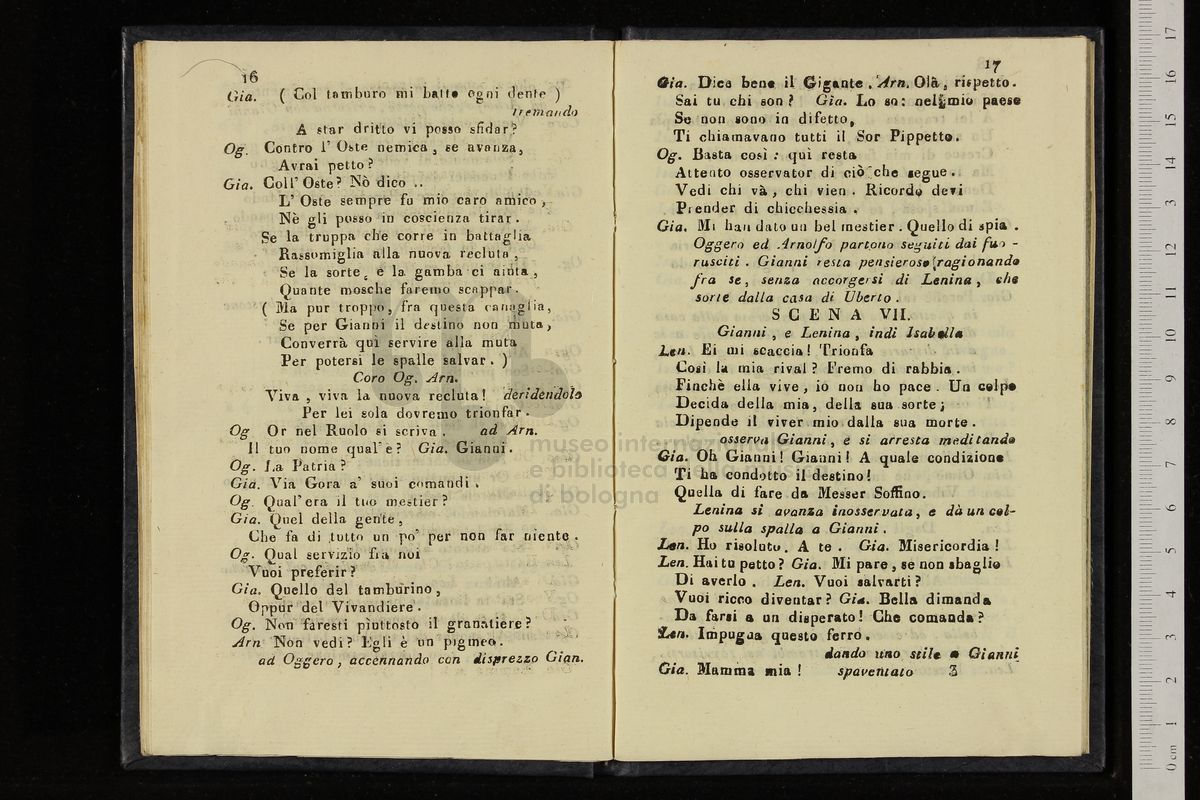 16
Gia. ( Col tamburo mi batte ogni dente )
tremando
A star dritto vi posso sfidar?
Og. Contro l' Oste nemica, se avanza,
Avrai petto?
Gia. Coll' Oste? Nò dico ..
L' Oste sempre fu mio caro amico,
Nè gli posso in coscienza tirar.
Se la truppa che corre in battaglia
Rassomiglia alla nuova recluta,
Se la sorte, e la gamba ci aiuta,
Quante mosche faremo scappar.
( Ma pur troppo, fra questa canaglia,
Se per Gianni il destino non muta,
Converrà quì servire alla muta
Per potersi le spalle salvar. )
Coro Og. Arn.
Viva, viva la nuova recluta! deridendolo
Per lei sola dovremo trionfar.
Og Or nel Ruolo si scriva. ad Arn.
Il tuo nome qual'e? Gia. Gianni.
Og. La Patria?
Gia. Via Gora a' suoi comandi.
Og. Qual'era il tuo mestier?
Gia. Quel della gente,
Che fa di tutto un po' per non far niente.
Og. Qual servizio fra noi
Vuoi preferir?
Gia. Quello del tamburino,
Oppur del Vivandiere.
Og. Non faresti piuttosto il granatiere?
Arn Non vedi? Egli è un pigmeo.
ad Oggero, accennando con disprezzo Gian.
17
Gia. Dica bene il Gigante. Arn. Olà, rispetto.
Sai tu chi son? Gia. Lo so: nel mio paese
Se non sono in difetto,
Ti chiamavano tutti il Sor Pippetto.
Og. Basta così: quì resta
Attento osservator di ciò che segue.
Vedi chi và, chi vien. Ricordo devi
Prender di chicchessia.
Gia. Mi han dato un bel mestier. Quello di spia.
Oggero ed Arnolfo partono seguiti dai fuo-
rusciti. Gianni resta pensieroso ragionando
fra se, senza accorgersi di Lenina, che
sorte dalla casa di Uberto.
SCENA VII.
Gianni, e Lenina, indi Isabella
Len. Ei mi scaccia! Trionfa
Così la mia rival? Fremo di rabbia.
Finchè ella vive, io non ho pace. Un colpo
Decida della mia, della sua sorte;
Dipende il viver mio dalla sua morte.
osserva Gianni, e si arresta meditando
Gia. Oh Gianni! Gianni! A quale condizione
Ti ha condotto il destino!
Quella di fare da Messer Soffino.
Lenina si avanza inosservata, e dà un col-
po sulla spalla a Gianni.
Len. Ho risoluto. A te. Gia. Misericordia!
Len. Hai tu petto? Gia. Mi pare, se non sbaglio
Di averlo. Len. Vuoi salvarti?
Vuoi ricco diventar? Gia. Bella dimanda
Da farsi a un disperato! Che comanda?
Len. Impugna questo ferro.
dando uno stile a Gianni
Gia. Mamma mia! spaventato 3
museo internazionale
e biblioteca della musica
di bologna
0 cm 1 2 3 4 5 6 7 8 9 10 11 12 13 14 15 16 17